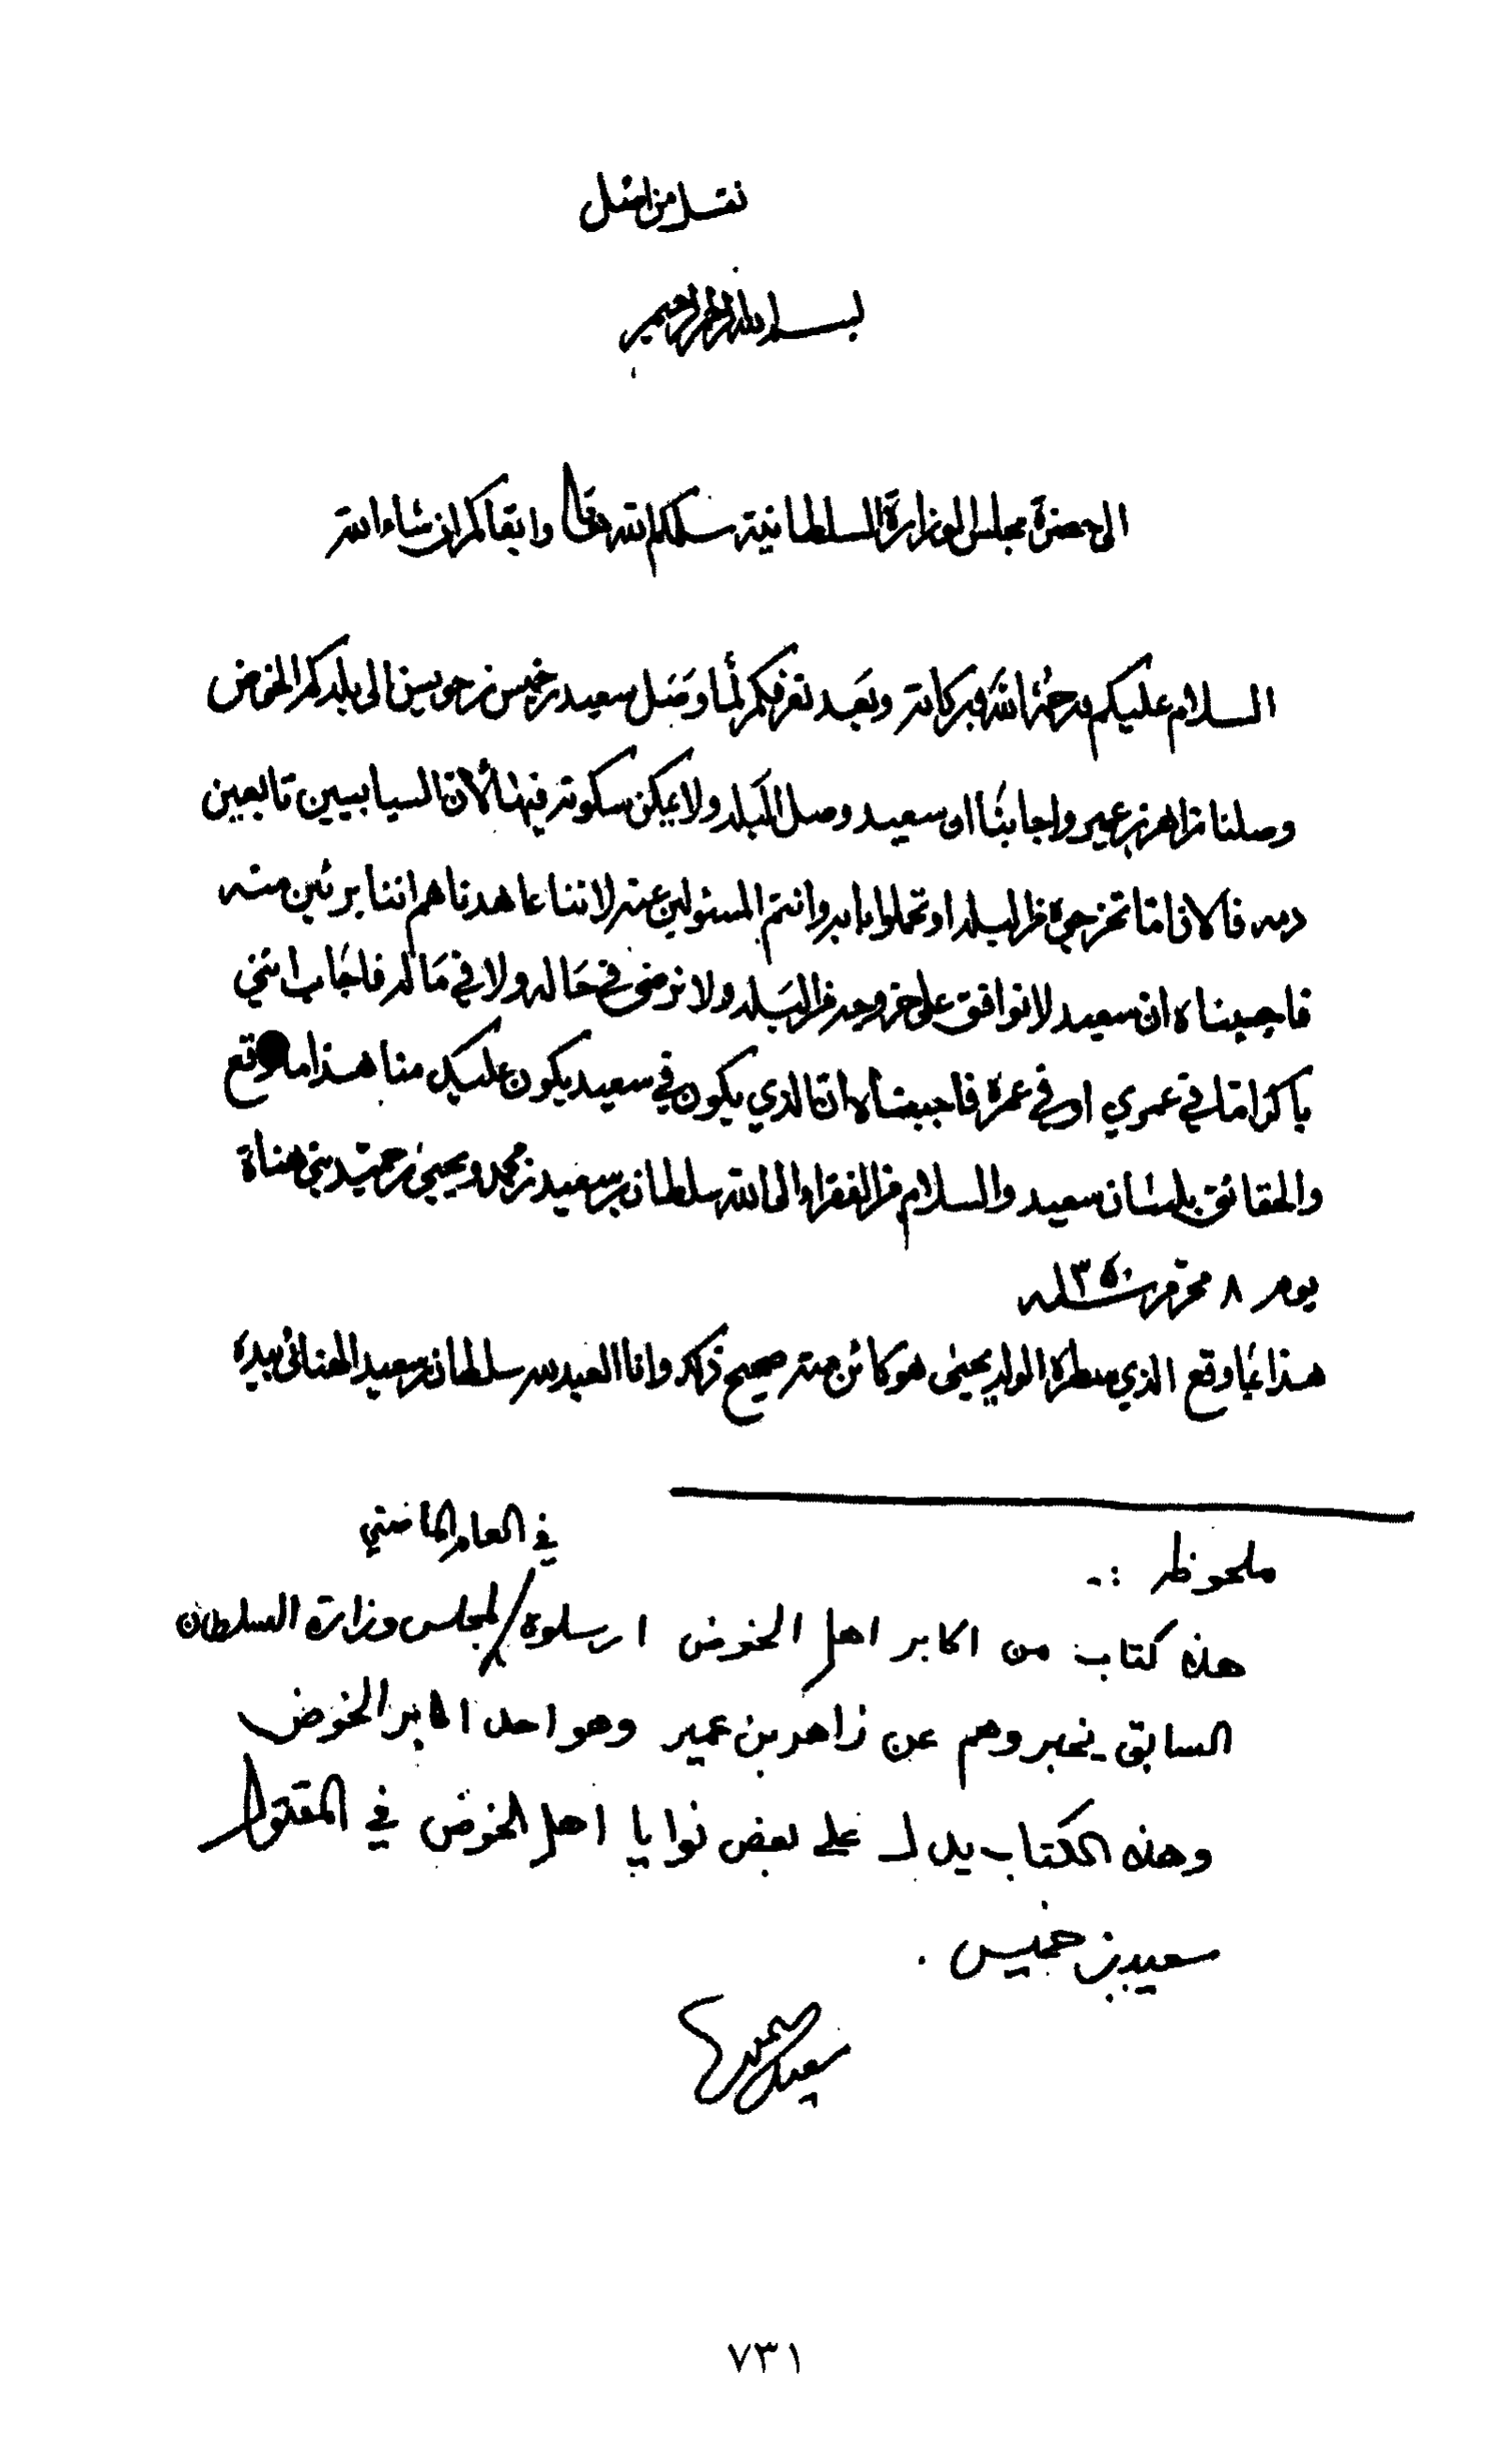 نقل من اصل
بسم الله الرحمن الرحيم
الى حضرة مجلس الوزارة السلطانية سلمكم الله تعالى وابقاكم ان شاء الله
السلام عليكم ورحمة الله وبركاته وبعد نعرفكم لما وصل سعيد بن خميس بن حويسن الى بلدكم الخوض
وصلنا زاهر بن عمير واجابنا ان سعيد وصل البلد ولا يمكن سكونه فيها لأن السيابيين تابعين
دمه فالان اما تخرجوه من البلد او تحملوا بابه وانتم المسئولين عنه لاننا عاهدناهم اننا بريئين منه
فاجبناه ان سعيد لا نوافق على خروجه من البلد ولا نرضى في حاله ولا في ماله فاجاب انني
باكر اما في عمري او في عمره فاجبناه ان الذي يكون في سعيد يكون عليك منا هذا ما وقع
والحقائق بلسان سعيد والسلام من الفقراء الى الله سلطان بن سعيد بن محمد ويحيى بن حميد بني هناة
يوم ٨ محرم سنة ١٣٥٠
هذا ما وقع الذي سطره الولد يحيى هو كائن منه صحيح ذلك وانا العبد لله سلطان بن سعيد الهنائي بيده
ملحوظه :-
في العام الماضي
هذه كتاب من اكابر اهل الخوض ارسلوه / لمجلس وزارة السلطان
السابق يخبروهم عن زاهر بن عمير وهو احد اكابر الخوض
وهذه الكتاب يدل على بعض نوايا اهل الخوض في المقتول
سعيد بن خميس .
٧٣١